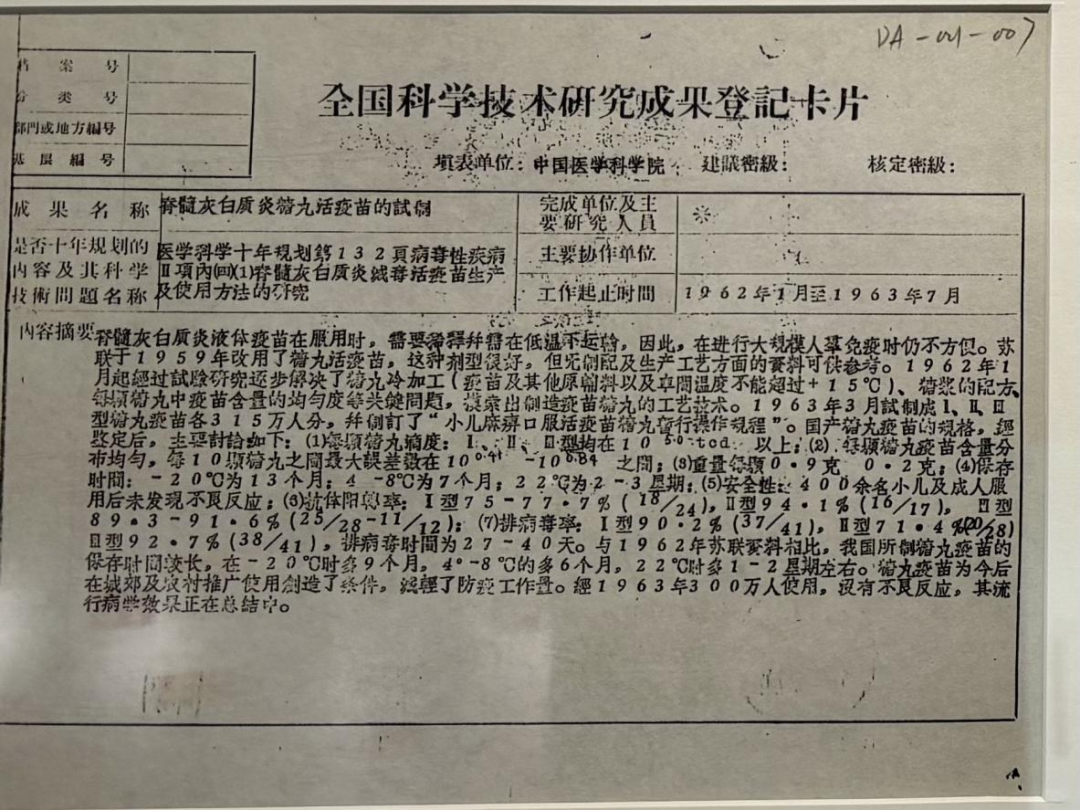 DA-01-007
档案号
分类号
部門或地方編号
基层編号
全国科学技术研究成果登記卡片
填表单位：中国医学科学院 建議密級： 核定密級：
成果名称 脊髓灰白质炎糖丸活疫苗的試制
完成单位及主要研究人員 ※
是否十年規划的内容及其科学技術問題名称
医学科学十年規划第132頁病毒性疾病
Ⅱ項內㈣(1)脊髓灰白质炎减毒活疫苗生产
及使用方法的研究
主要协作单位
工作起止时間 1962年1月至1963年7月
内容摘要
脊髓灰白质炎液体疫苗在服用时，需要稀释幷需在低温下运輸，因此，在进行大規模人羣免疫时仍不方便。苏
联于1959年改用了糖丸活疫苗，这种剂型很好，但无制配及生产工艺方面的資料可供参考。1962年1
月起經过試驗研究逐步解决了糖丸冷加工(疫苗及其他原輔料以及車間温度不能超过+15℃)、糖浆的配方、
每顆糖丸中疫苗含量的均匀度等关鍵問題，摸索出制造疫苗糖丸的工艺技术。1963年3月試制成Ⅰ、Ⅱ、Ⅲ
型糖丸疫苗各315万人分，幷制訂了“小儿麻痹口服活疫苗糖丸暂行操作規程”。国产糖丸疫苗的規格，經
鉴定后，主要討論如下：(1)每顆糖丸滴度：Ⅰ、Ⅱ、Ⅲ型均在10 以上；(2)每顆糖丸疫苗含量分
布均匀，每10顆糖丸之間最大誤差数在10 -10 之間；(3)重量每顆0.9克 0.2克；(4)保存
时間：-20℃为13个月；4-8℃为7个月；22℃为2-3星期；(5)安全性： 400余名小儿及成人服
用后未发现不良反应；(6)抗体阳轉率：Ⅰ型75-77.7%(18/24)，Ⅱ型94.1%(16/17)，Ⅲ型
89.3-91.6%(25/28-11/12)；(7)排病毒率：Ⅰ型90.2%(37/41)，Ⅱ型71.4%(20/28)
Ⅲ型92.7%(38/41)，排病毒时間为27-40天。与1962年苏联資料相比，我国所制糖丸疫苗的
保存时間較长，在-20℃时多9个月，4°-8℃的多6个月，22℃时多1-2星期左右。糖丸疫苗为今后
在城郊及农村推广使用創造了条件，减輕了防疫工作量。經1963年300万人使用，没有不良反应，其流
行病学效果正在总結中。